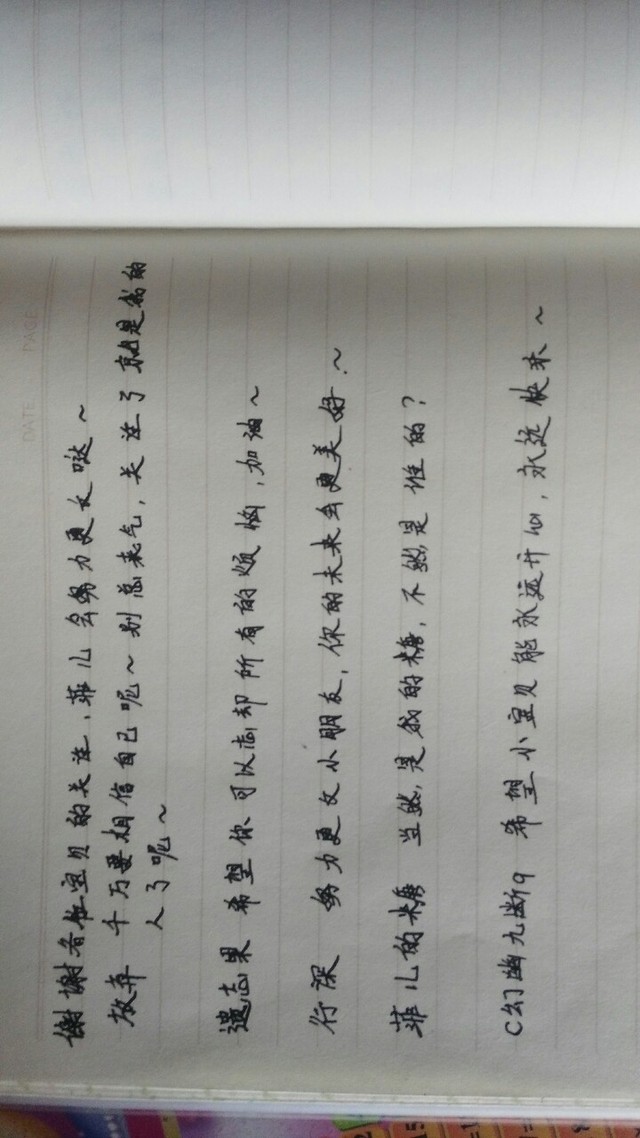 DATE PAGE
谢谢各位宝贝的关注，菲儿会努力更文哒～
放弃 千万要相信自己呢～别总丧气，关注了就是我的
人了呢～
遗忘果 希望你可以忘却所有的烦恼，加油～
行深 努力更文小朋友，你的未来会更美好～
菲儿的糖 当然是我的糖，不然是谁的？
C幻幽九断9 希望小宝贝能永远开心，永远快乐～